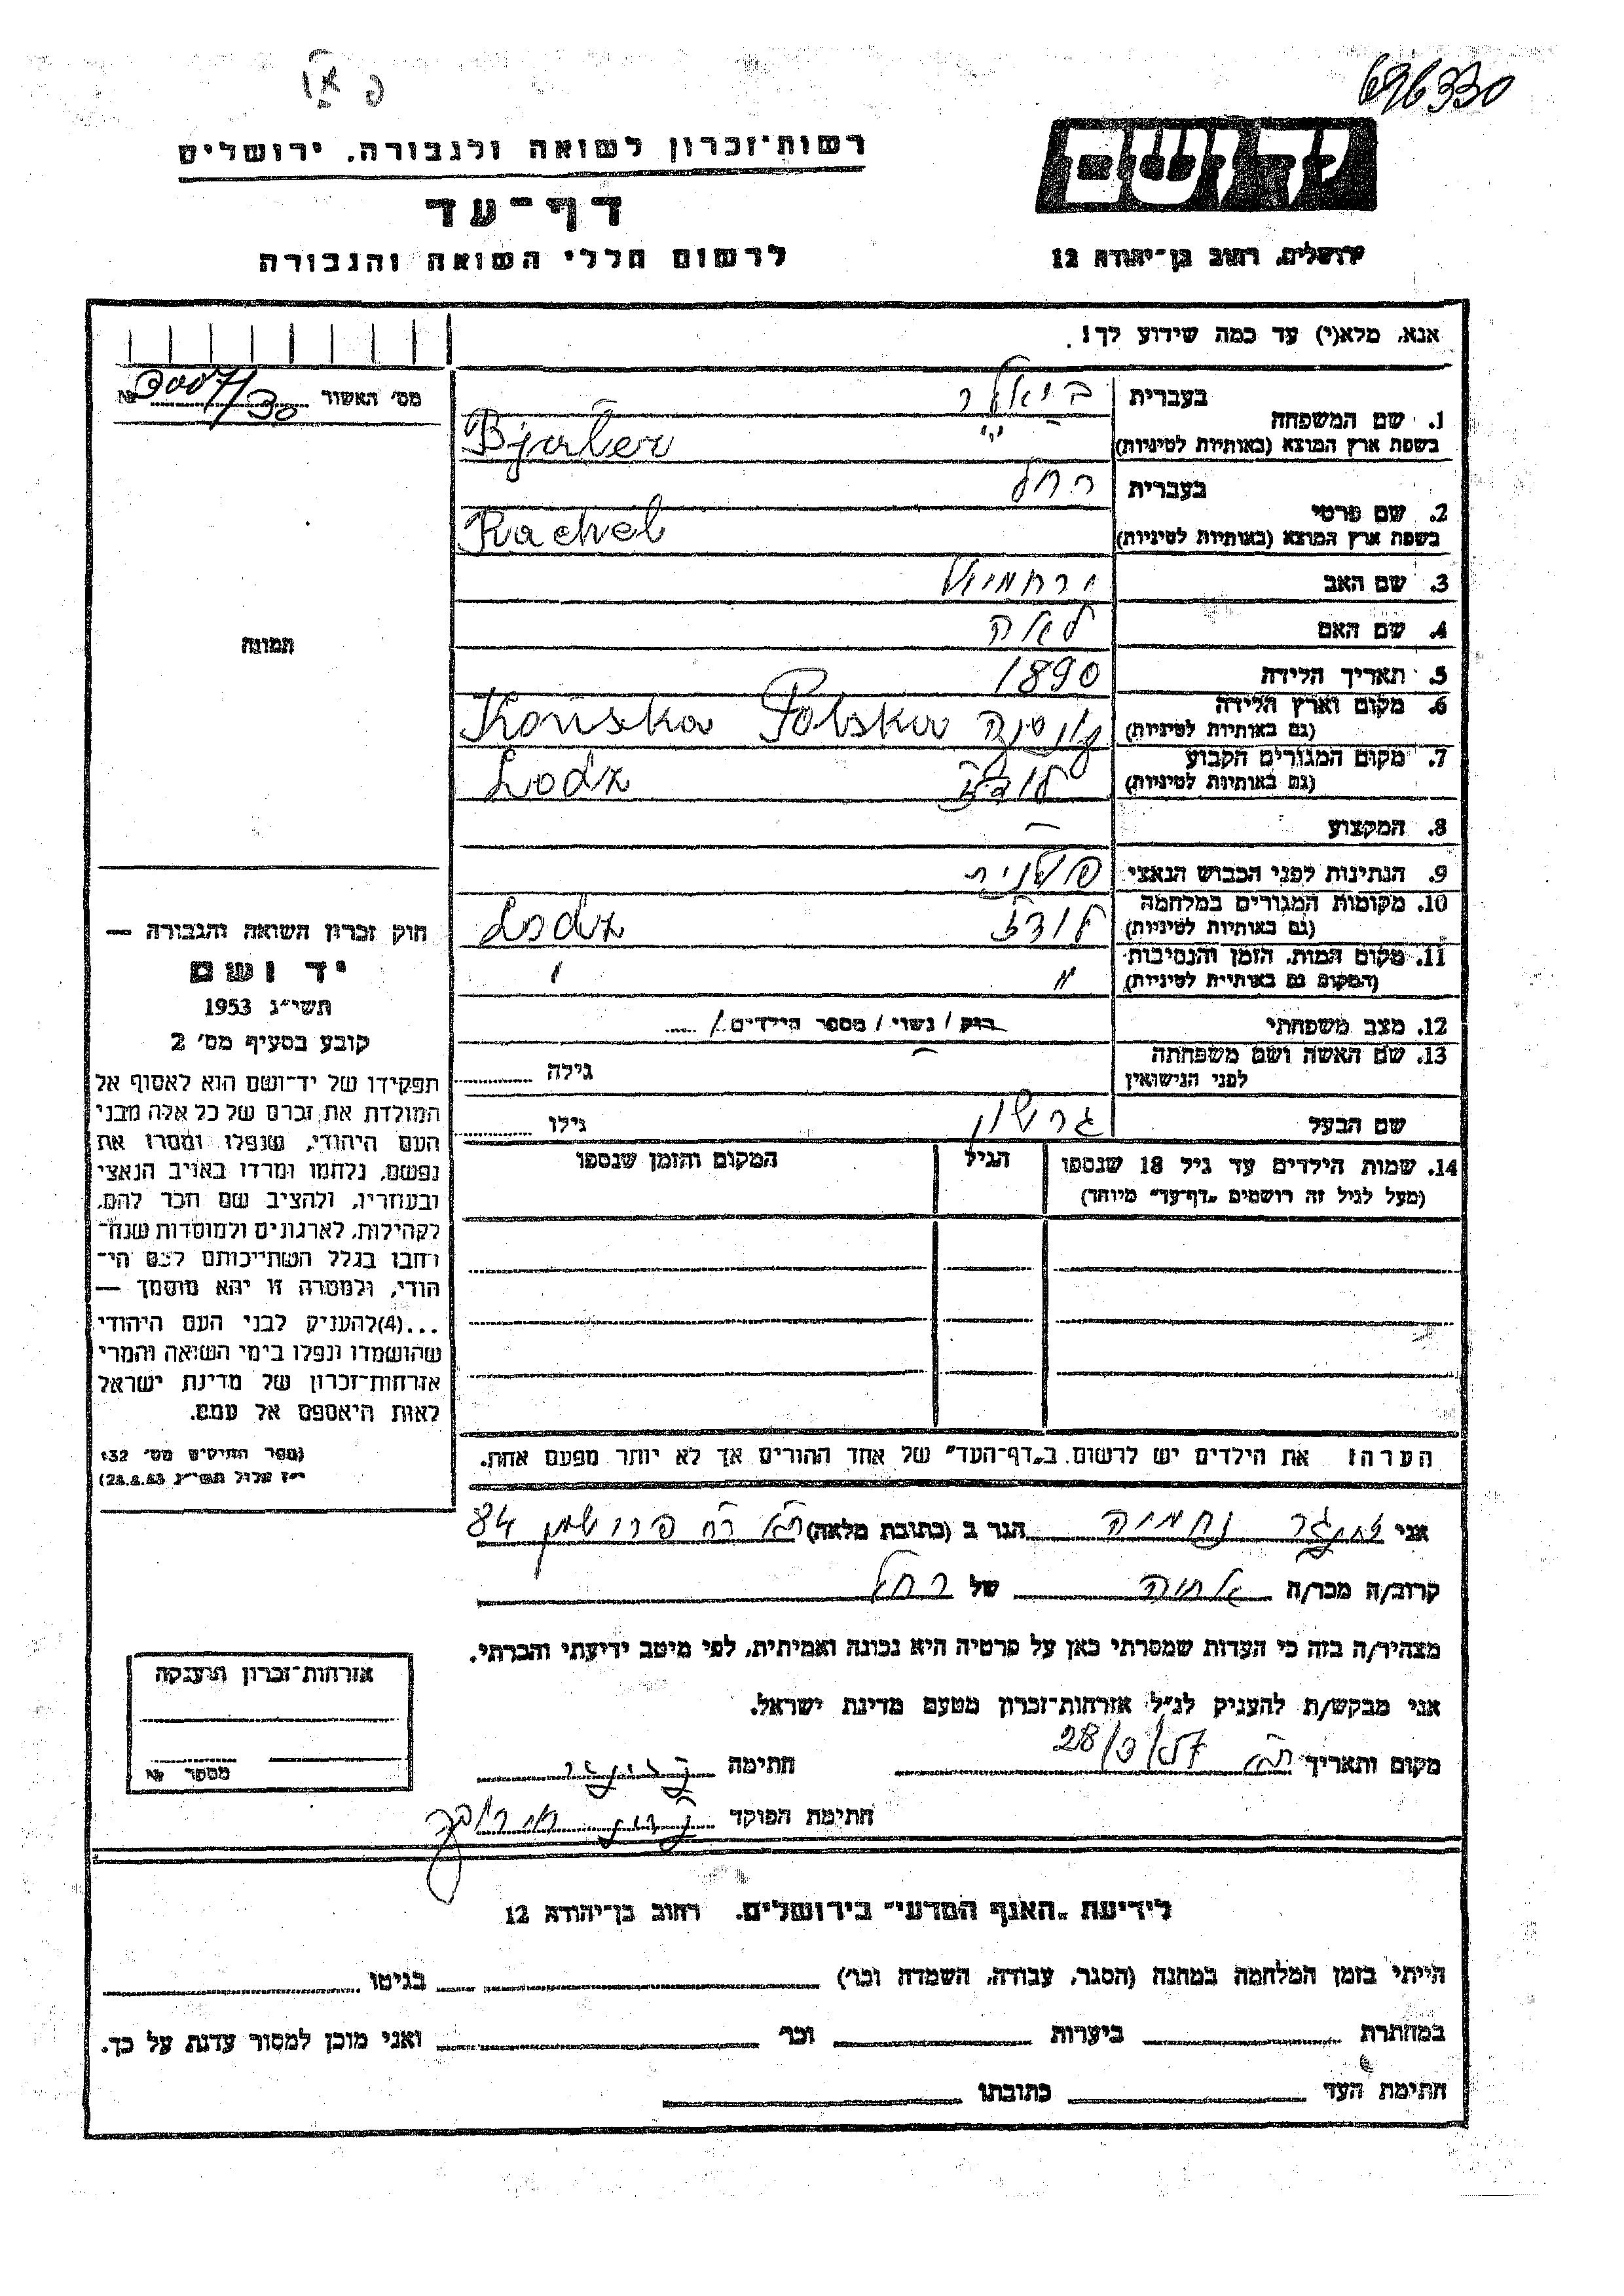 696330
רשות־זכרון לשואה ולגבורה, ירושלים
דף־עד
לרשום חללי השואה והגבורה
יד ושם
ירושלים, רחוב בן־יהודה 12
אנא, מלא(י) עד כמה שידוע לך!
מס׳ האשור 3007/30 №
1. שם המשפחה
בעברית ביאלר
בשפת ארץ המוצא (באותיות לטיניות) Bjaler
2. שם פרטי
בעברית רחל
בשפת ארץ המוצא (באותיות לטיניות) Rachel
3. שם האב ירחמיאל
4. שם האם לאה
5. תאריך הלידה 1890
6. מקום וארץ הלידה
(גם באותיות לטיניות) Końska Polska
7. מקום המגורים הקבוע
(גם באותיות לטיניות) לודז Lodz
8. המקצוע —
9. הנתינות לפני הכבוש הנאצי פולנית
10. מקומות המגורים במלחמה
(גם באותיות לטיניות) לודז Lodz
11. מקום המות, הזמן והנסיבות
(המקום גם באותיות לטיניות) " "
12. מצב משפחתי רוק / נשוי / מספר הילדים /
13. שם האשה ושם משפחתה
לפני הנישואין — גילה
שם הבעל גרשון גילו
14. שמות הילדים עד גיל 18 שנספו הגיל המקום והזמן שנספו
(מעל לגיל זה רושמים „דף־עד" מיוחד)
תמונה
חוק זכרון השואה והגבורה —
יד ושם
תשי״ג 1953
קובע בסעיף מס׳ 2
תפקידו של יד־ושם הוא לאסוף אל
המולדת את זכרם של כל אלה מבני
העם היהודי, שנפלו ומסרו את
נפשם, נלחמו ומרדו באויב הנאצי
ובעוזריו, ולהציב שם וזכר להם,
לקהילות, לארגונים ולמוסדות שנח־
רבו בגלל השתייכותם לעם הי־
הודי, ולמטרה זו יהא מוסמך —
...(4)להעניק לבני העם היהודי
שהושמדו ונפלו בימי השואה והמרי
אזרחות־זכרון של מדינת ישראל
לאות היאספם אל עמם.
(ספר החוקים מס׳ 132
י״ז אלול תשי״ג 28.8.53)
הערה: את הילדים יש לרשום ב„דף־העד" של אחד ההורים אך לא יותר מפעם אחת.
אני נחמיה הגר ב (כתובת מלאה) ת״א רח פרישמן 84
קרוב/ה מכר/ה אחיה של רחל
מצהיר/ה בזה כי העדות שמסרתי כאן על פרטיה היא נכונה ואמיתית, לפי מיטב ידיעתי והכרתי.
אני מבקש/ת להעניק לנ״ל אזרחות־זכרון מטעם מדינת ישראל.
מקום ותאריך ת״א 28/3/57 חתימה
חתימת הפוקד
אזרחות־זכרון הוענקה
מספר №
לידיעת „האגף המדעי" בירושלים, רחוב בן־יהודה 12
הייתי בזמן המלחמה במחנה (הסגר, עבודה, השמדה וכו׳) בגיטו
במחתרת ביערות וכו׳ ואני מוכן למסור עדות על כך.
חתימת העד כתובתו